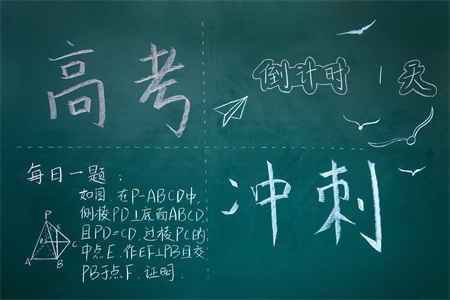 高考
倒计时 1天
每日一题：
如图,在P-ABCD中,
侧棱PD⊥底面ABCD,
且PD=CD,过棱PC的
中点E,作EF⊥PB且交
PB于点F,证明:
P
A
B
C
冲刺